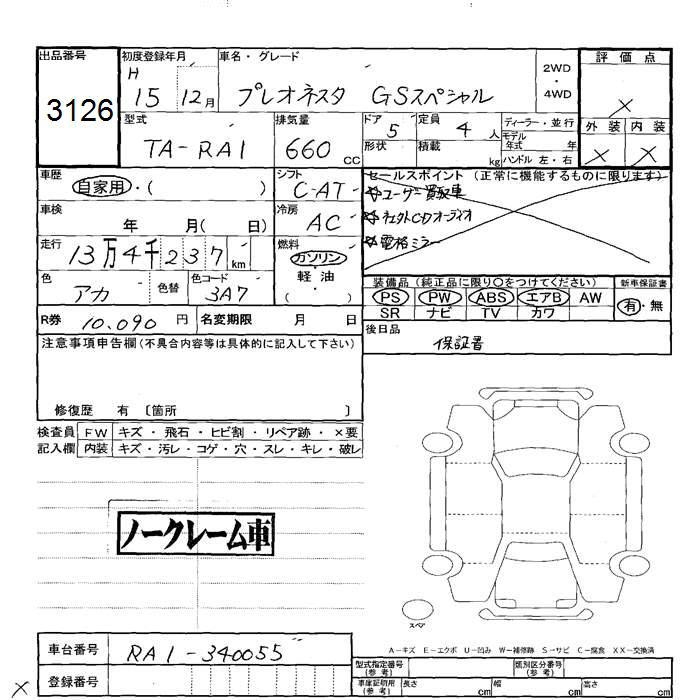 出品番号 初度登録年月 車名・グレード 評価点
3126 H 15 12月 プレオネスタ GSスペシャル 2WD ・ 4WD ×
外装 内装
× ×
型式 排気量 ドア 定員 ディーラー・並行
TA-RA1 660 CC 5 4人 モデル年式 年
形状 積載 kg ハンドル 左・右
車歴 シフト セールスポイント (正常に機能するものに限ります)
自家用・( ) C-AT
☆ユーザー買取車
車検 冷房
年 月( 日) AC
☆社外CDオーディオ
☆電格ミラー
走行 燃料
13万4千237km ガソリン・軽油・( )
色 色替 色コード
アカ 3A7
装備品 (純正品に限り○をつけてください) 新車保証書
PS PW ABS エアB AW 有・無
SR ナビ TV カワ
R券 10,090円 名変期限 月 日
後日品
保証書
注意事項申告欄(不具合内容等は具体的に記入して下さい)
修復歴 有 〔箇所 〕
検査員 FW キズ・飛石・ヒビ割・リペア跡・×要
記入欄 内装 キズ・汚レ・コゲ・穴・スレ・キレ・破レ
ノークレーム車
スペア
A−キズ E−エクボ U−凹み W−補修跡 S−サビ C−腐食 XX−交換済
車台番号 RA1-340055
登録番号
×
型式指定番号(参考) 類別区分番号(参考)
車庫証明用(参考) 長さ cm 幅 cm 高さ cm